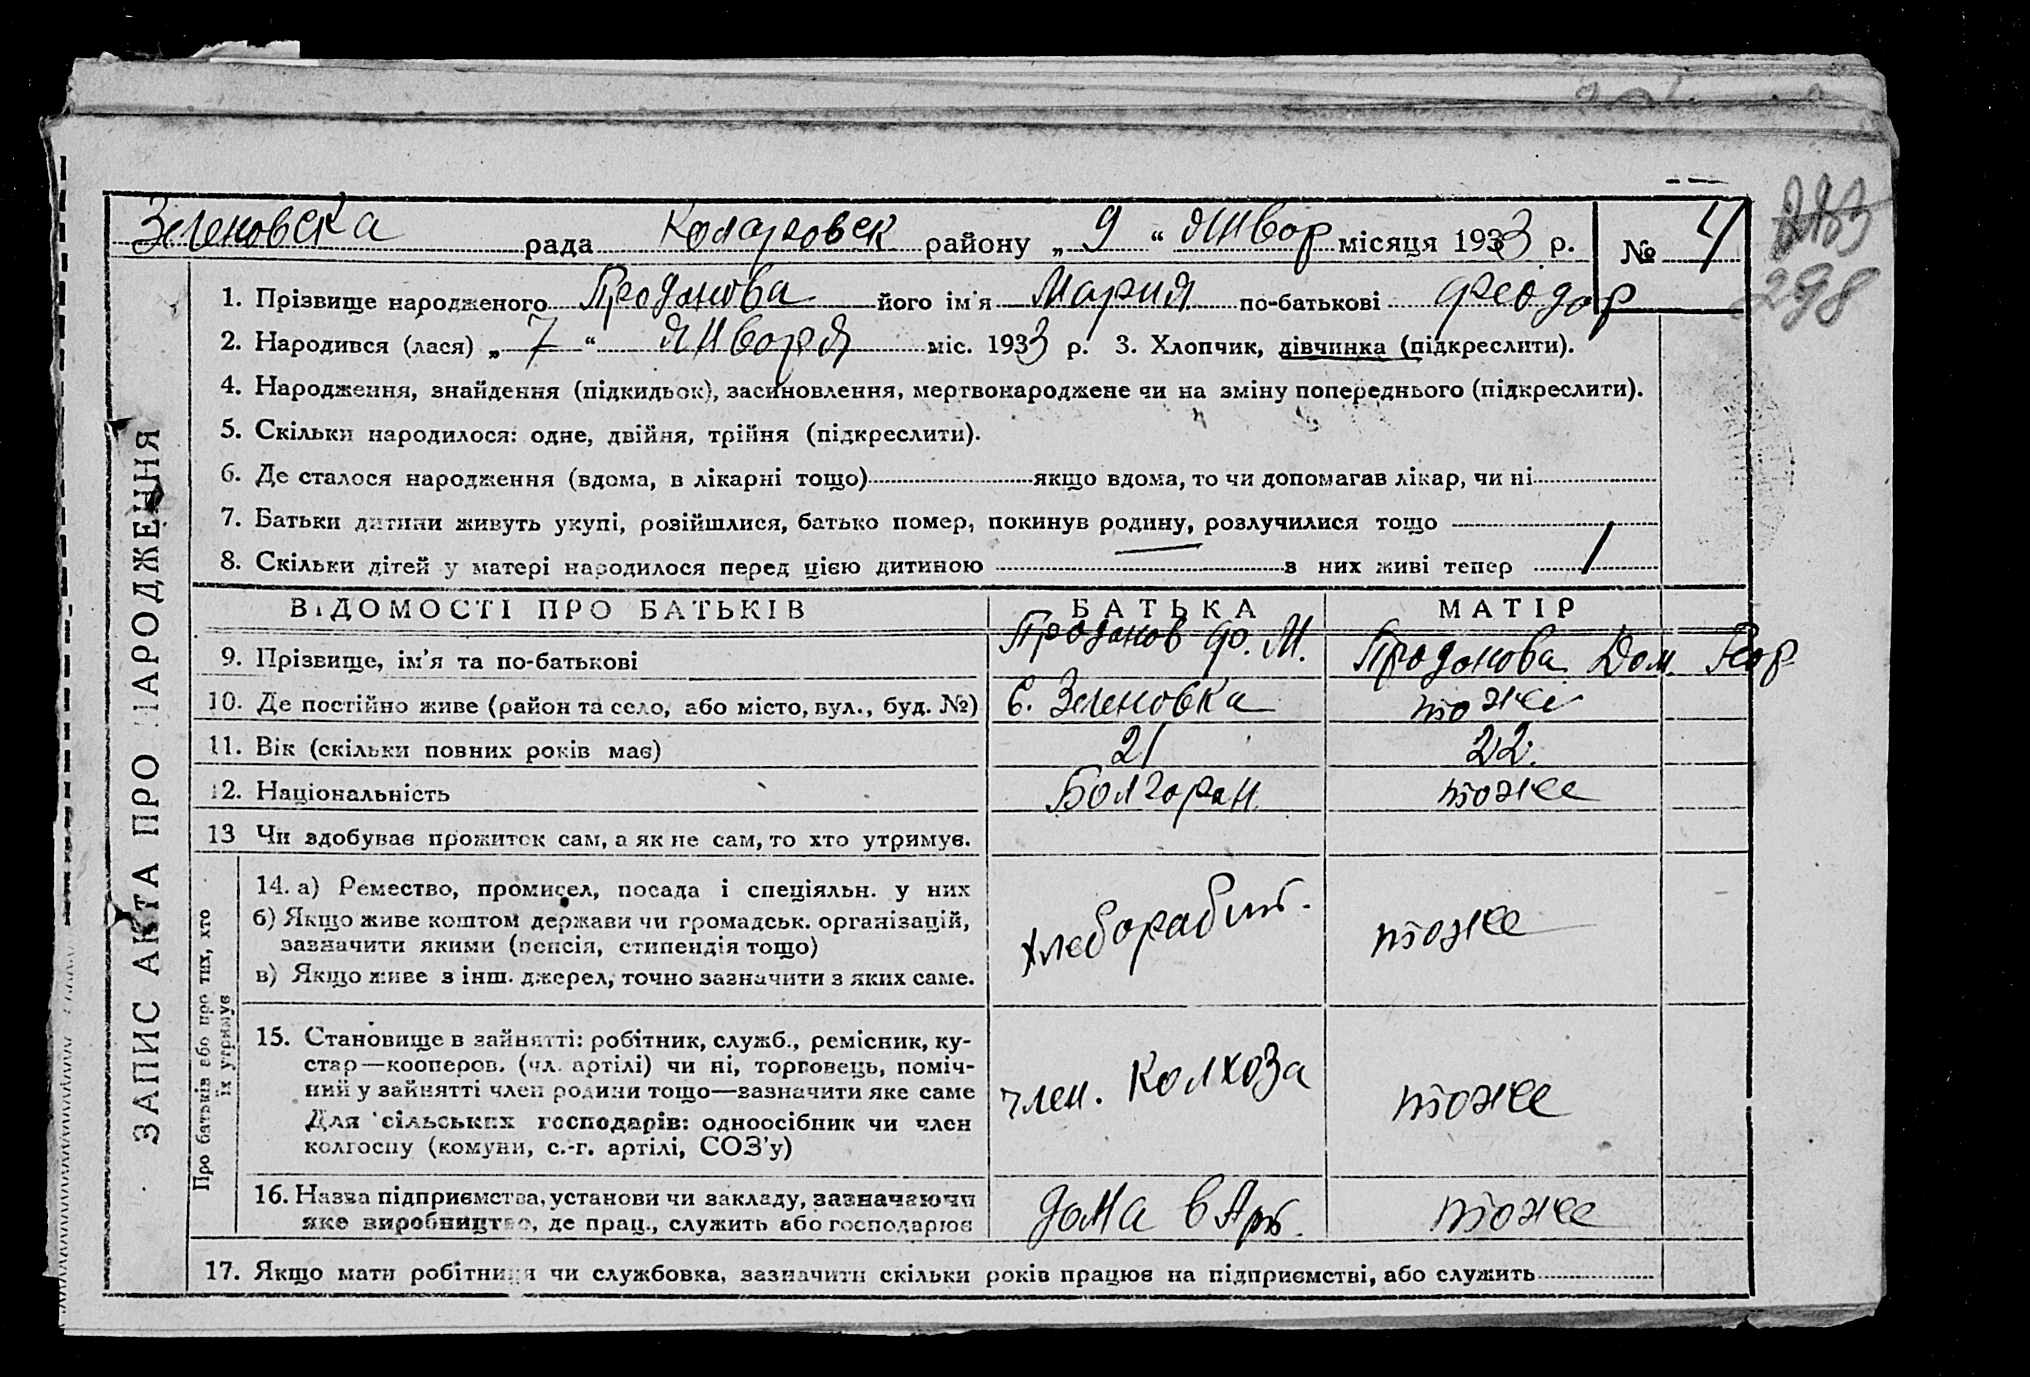 Зеленовска рада Коларовск району „ 9 “ Январ місяця 1933 р. № 4
298
1. Прізвище народженого Проданова його ім'я Мария по-батькові Феодор
2. Народився (лася) „ 7 “ Января міс. 1933 р. 3. Хлопчик, дівчинка (підкреслити).
4. Народження, знайдення (підкидьок), засиновлення, мертвонароджене чи на зміну попереднього (підкреслити).
5. Скільки народилося: одне, двійня, трійня (підкреслити).
6. Де сталося народження (вдома, в лікарні тощо) якщо вдома, то чи допомагав лікар, чи ні
7. Батьки дитини живуть укупі, розійшлися, батько помер, покинув родину, розлучилися тощо
8. Скільки дітей у матері народилося перед цією дитиною — в них живі тепер 1
ВІДОМОСТІ ПРО БАТЬКІВ БАТЬКА МАТІР
9. Прізвище, ім'я та по-батькові Проданов Ф. М. Проданова Дом. Геор
10. Де постійно живе (район та село, або місто, вул., буд. №) с. Зеленовка тоже
11. Вік (скільки повних років має) 21 22.
12. Національність Болгаран. тоже
13 Чи здобуває прожиток сам, а як не сам, то хто утримує.
14. а) Ремество, промисел, посада і спеціяльн. у них
б) Якщо живе коштом держави чи громадськ. організацій,
зазначити якими (пенсія, стипендія тощо) хлеборабит. тоже
в) Якщо живе з інш. джерел, точно зазначити з яких саме.
15. Становище в зайнятті: робітник, служб., ремісник, ку-
стар—кооперов. (чл. артілі) чи ні, торговець, поміч-
ний у зайнятті член родини тощо—зазначити яке саме член. Колхоза тоже
Для сільських господарів: одноосібник чи член
колгоспу (комуни, с.-г. артілі, СОЗ'у)
16. Назва підприємства, установи чи закладу, зазначаючи
яке виробництво, де прац., служить або господарює дома в Арт. тоже
17. Якщо мати робітниця чи службовка, зазначити скільки років працює на підприємстві, або служить
ЗАПИС АКТА ПРО НАРОДЖЕННЯ
Про батьків або про тих, хто
їх утримує